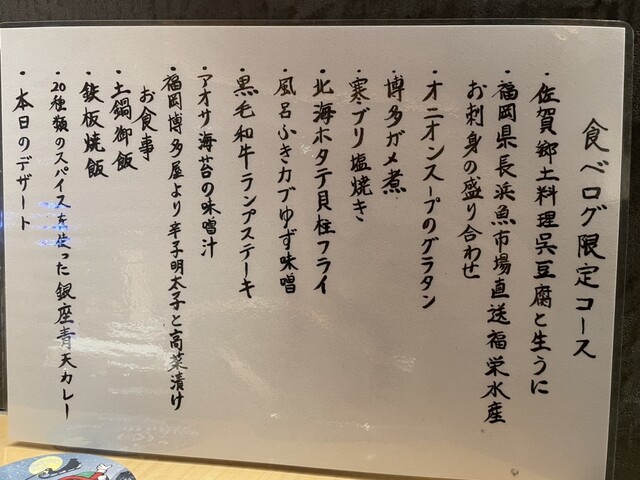 食べログ限定コース
・佐賀郷土料理呉豆腐と生うに
・福岡県長浜魚市場直送福栄水産
お刺身の盛り合わせ
・オニオンスープのグラタン
・博多ガメ煮
・寒ブリ塩焼き
・北海ホタテ貝柱フライ
・風呂ふきカブゆず味噌
・黒毛和牛ランプステーキ
・アオサ海苔の味噌汁
・福岡博多屋より辛子明太子と高菜漬け
お食事
・土鍋御飯
・鉄板焼飯
・20種類のスパイスを使った銀座青天カレー
・本日のデザート